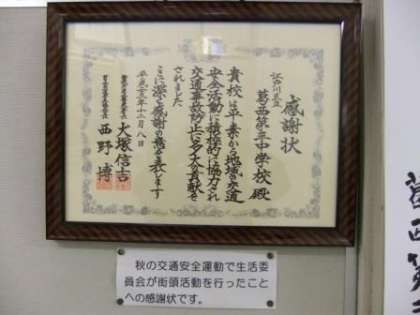 感謝状
江戸川区立
葛西第三中学校殿
貴校は平素から地域の交通
安全活動に積極的に協力され
交通事故防止に多大な貢献を
されました
ここに深く感謝の意を表します
平成二十年十二月八日
大塚信吉
西野博
秋の交通安全運動で生活委
員会が街頭活動を行ったこと
への感謝状です。